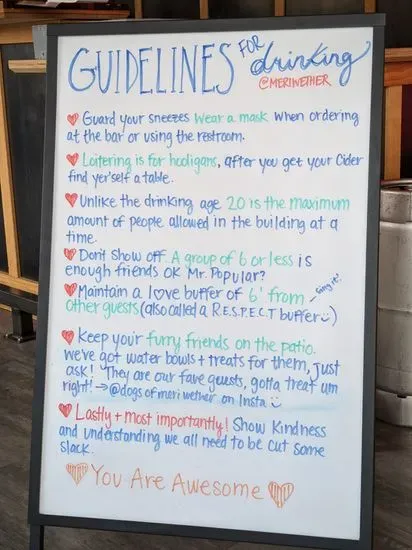 GUIDELINES FOR drinking
@MERIWETHER
Guard your sneezes wear a mask when ordering
at the bar or using the restroom.
Loitering is for hooligans, after you get your Cider
find yer'self a table.
Unlike the drinking age 20 is the maximum
amount of people allowed in the building at a
time.
Don't show off. A group of 6 or less is
enough friends OK Mr. Popular?
Maintain a love buffer of 6' from - sing it!
other guests (also called a R.E.S.P.E.C.T buffer)
Keep your furry friends on the patio.
we've got water bowls + treats for them, just
ask! They are our fave guests, gotta treat um
right! → @dogs of meriwether on Insta
Lastly + most importantly! Show kindness
and understanding we all need to be cut some
slack.
You Are Awesome